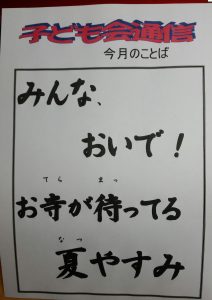 子ども会通信
今月のことば
みんな、
おいで！
てら まっ
お寺が待ってる
なつ
夏やすみ